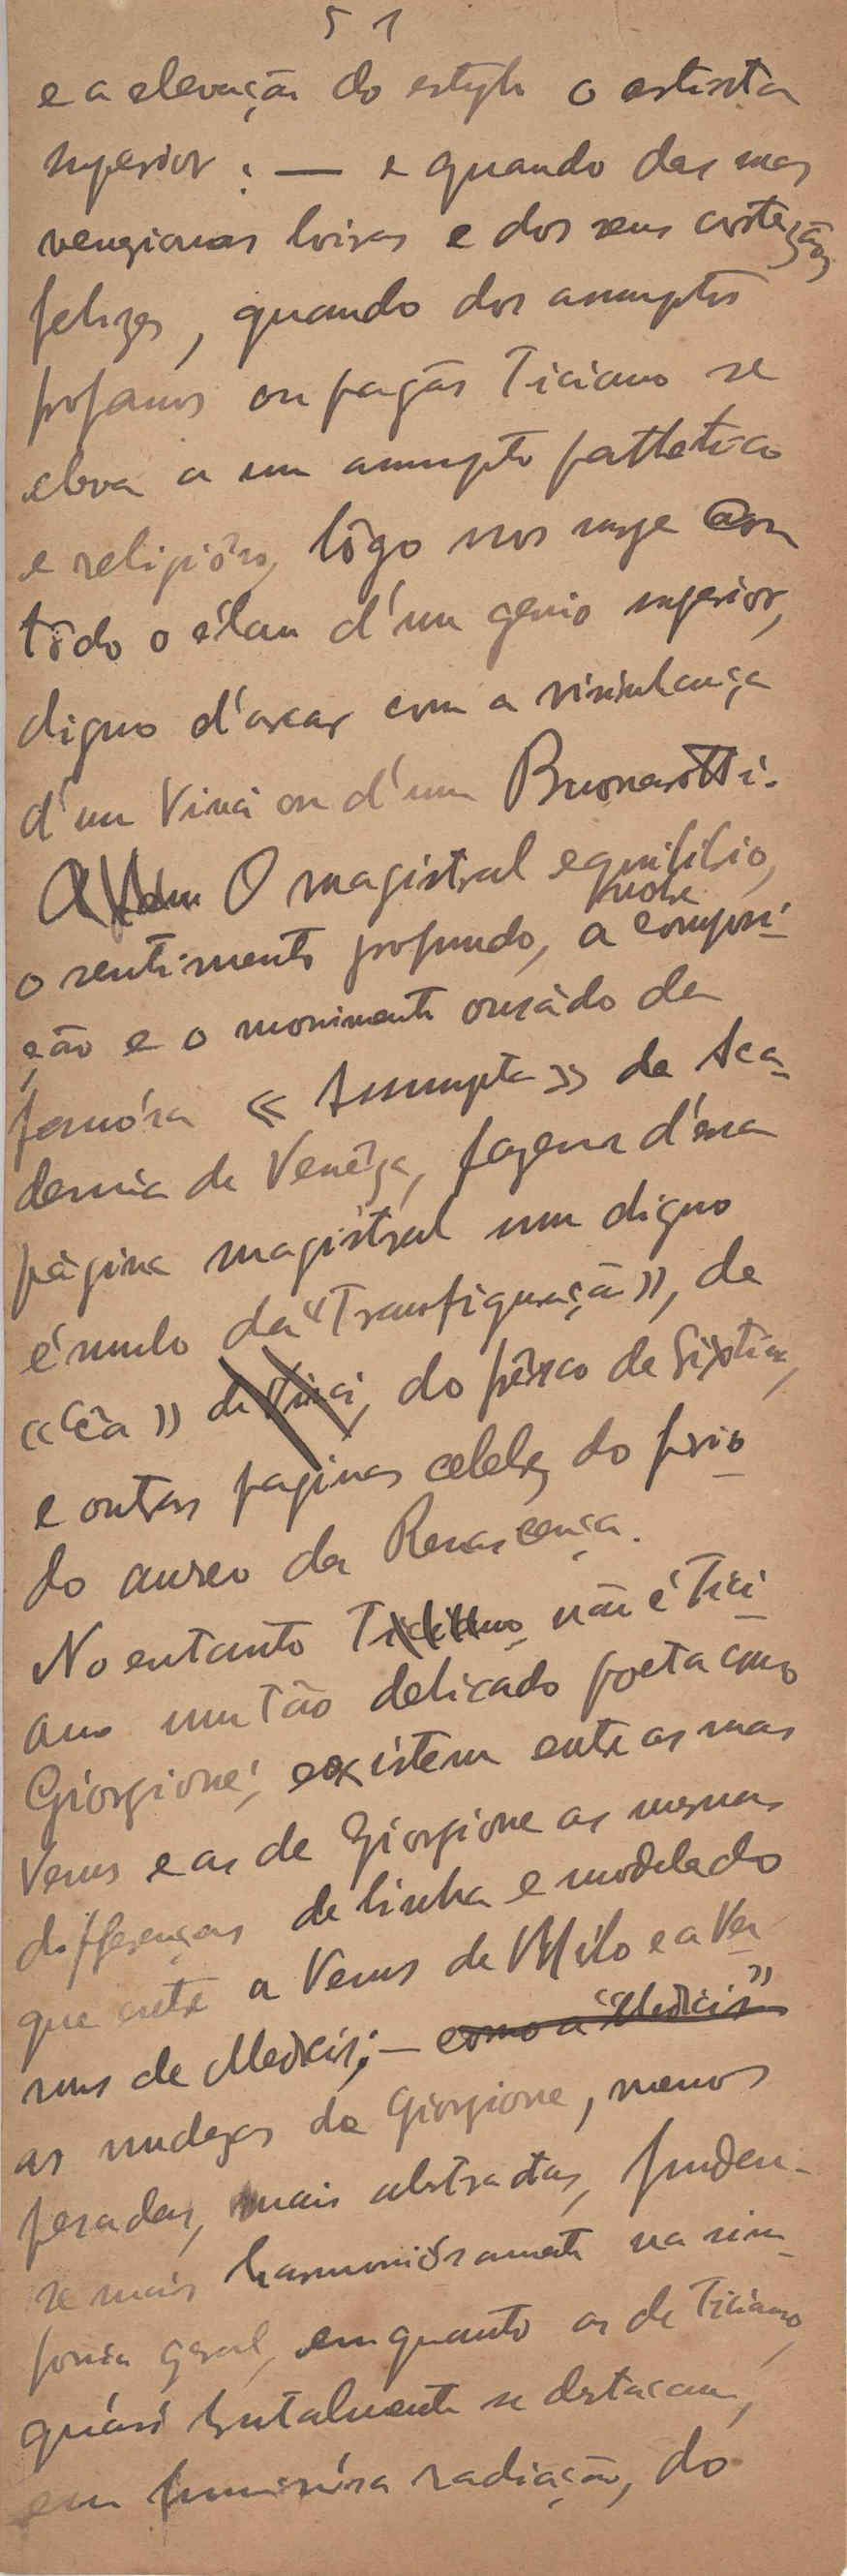 51
e a elevação do estylo o artista
superior: — e quando das suas
venezianas loiras e dos seus cortezãos
felizes, quando dos assumptos
profanos ou pagãos Ticiano se
eleva a um assumpto pathetico
e religiôso, lôgo nos surge com
tôdo o élan d'um genio superior,
digno d'arcar com a visinhança
d'um Vinci ou d'um Buonarotti.
O magistral equilibrio,
nobre
o sentimento profundo, a composi-
ção e o movimento ousádo da
famósa « Assumpta » da Aca-
demia de Venêza, fazem d'essa
página magistral um digno
émulo da "Transfiguração», da
«Cêa» de Vinci, do frêsco da Sixtina,
e outras paginas celebres do perio-
do aureo da Renascença.
No entanto Ticiano não é Tici-
ano um tão delicado poeta como
Giorgione; existem entre as suas
Venus e as de Giorgione as mesmas
differenças de linha e modelado
que entre a Venus de Milo e a Ve-
nus de Medicis; — como a "Medicis"
as nudezas de Giorgione, menos
pesadas, mais abstractas, fundem-
se mais harmoniósamente na sim-
fonia geral, emquanto as de Ticiano,
quási brutalmente se destacam,
em luminósa radiação, do